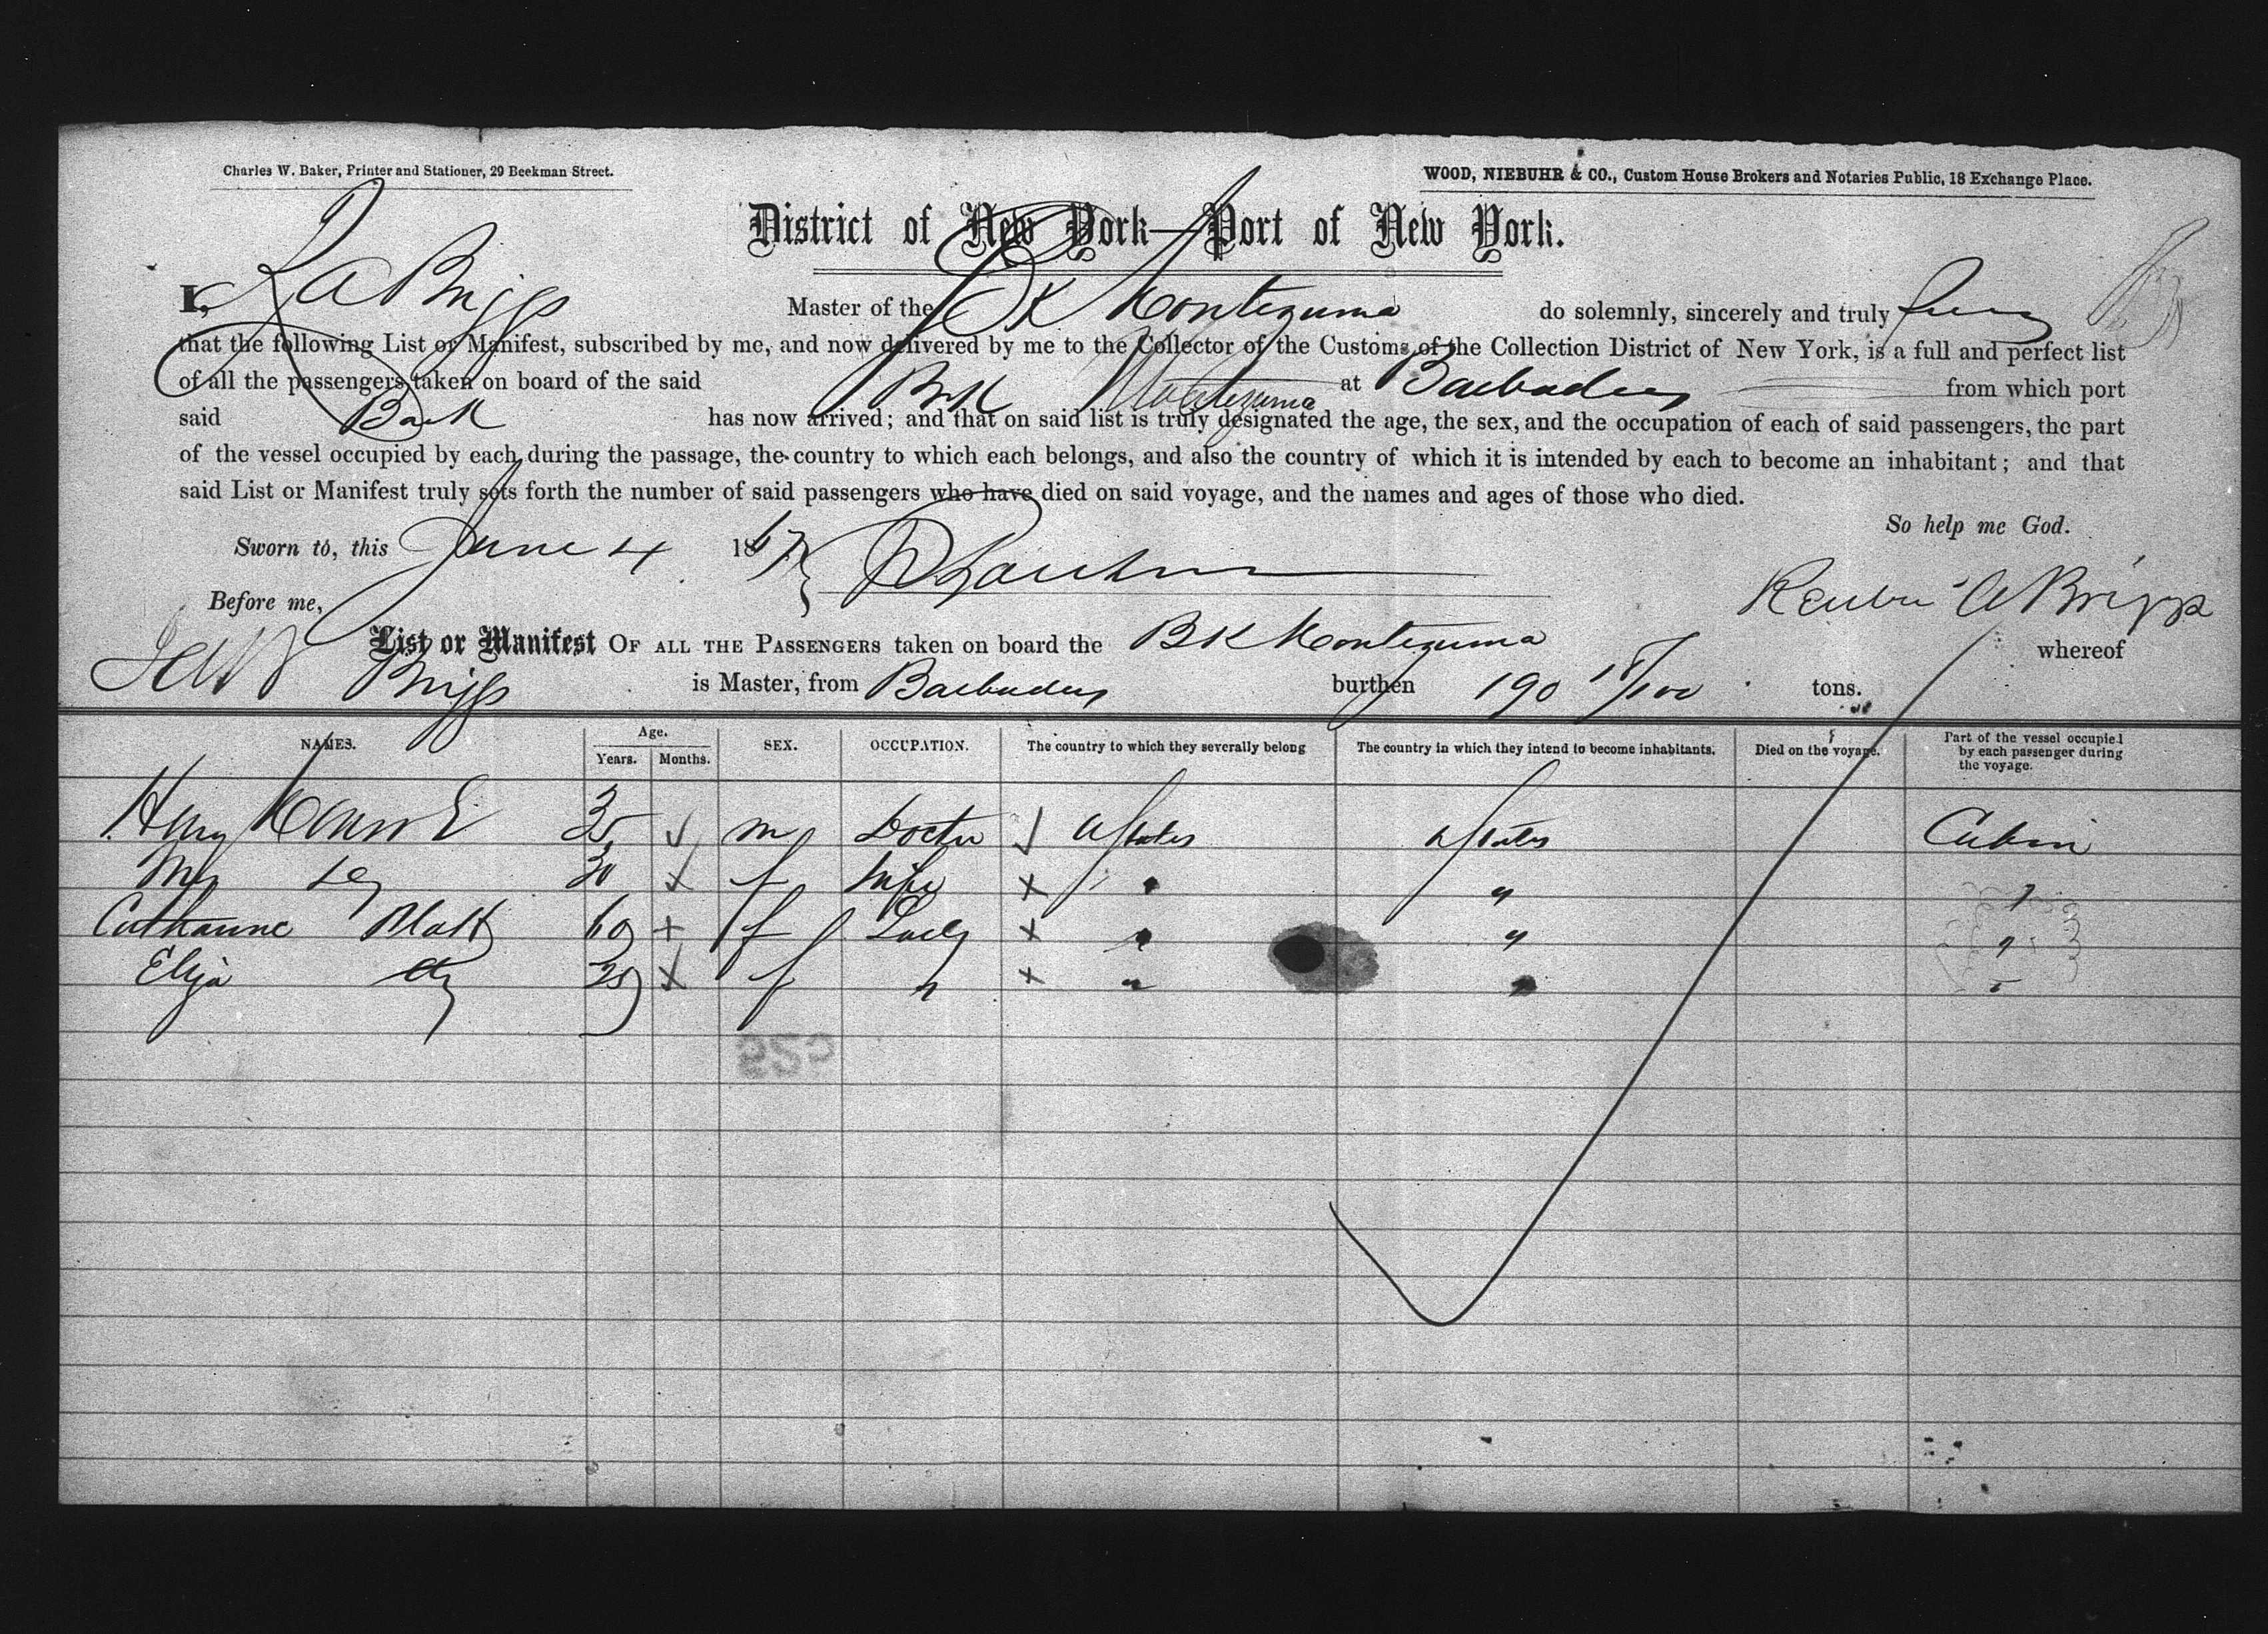 Charles W. Baker, Printer and Stationer, 29 Beekman Street.
WOOD, NIEBUHR & CO., Custom House Brokers and Notaries Public, 18 Exchange Place.
District of New York—Port of New York.
I, R A Briggs Master of the BK Montezuma do solemnly, sincerely and truly swear
that the following List or Manifest, subscribed by me, and now delivered by me to the Collector of the Customs of the Collection District of New York, is a full and perfect list
of all the passengers taken on board of the said Bark Montezuma at Barbadoes from which port
said Bark has now arrived; and that on said list is truly designated the age, the sex, and the occupation of each of said passengers, the part
of the vessel occupied by each during the passage, the country to which each belongs, and also the country of which it is intended by each to become an inhabitant; and that
said List or Manifest truly sets forth the number of said passengers who have died on said voyage, and the names and ages of those who died.
So help me God.
Sworn to, this June 4 1867
Before me,
Reuben A Briggs
List or Manifest OF ALL THE PASSENGERS taken on board the BK Montezuma whereof
Briggs is Master, from Barbadoes burthen 190 tons.
NAMES. Age. Years. Months. SEX. OCCUPATION. The country to which they severally belong The country in which they intend to become inhabitants. Died on the voyage. Part of the vessel occupied by each passenger during the voyage.
Henry 35 m Doctor U States U States Cabin
Mrs 30 f Wife " " "
Catharine Platt 60 f Lady " " "
Eliza 25 f " " " "